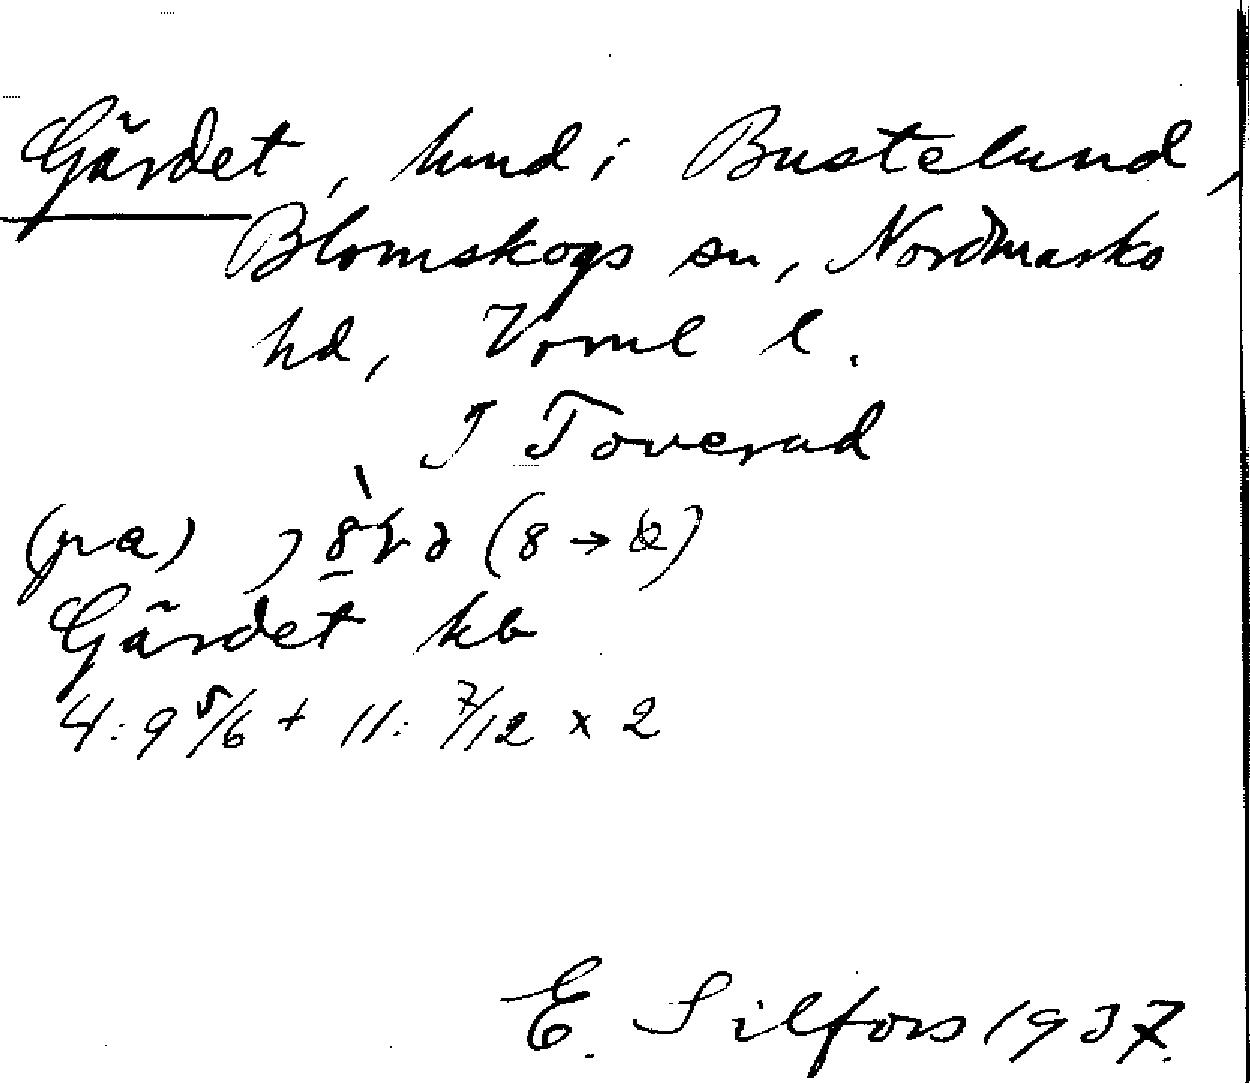 Gärdet, hmd i Bustelund,
Blomskogs sn, Nordmarks
hd, Vrml l.
I Toverud
(på)
Gärdet kb
4:9 5/6 + 11: 7/12 x 2
E. Silfors 1937.